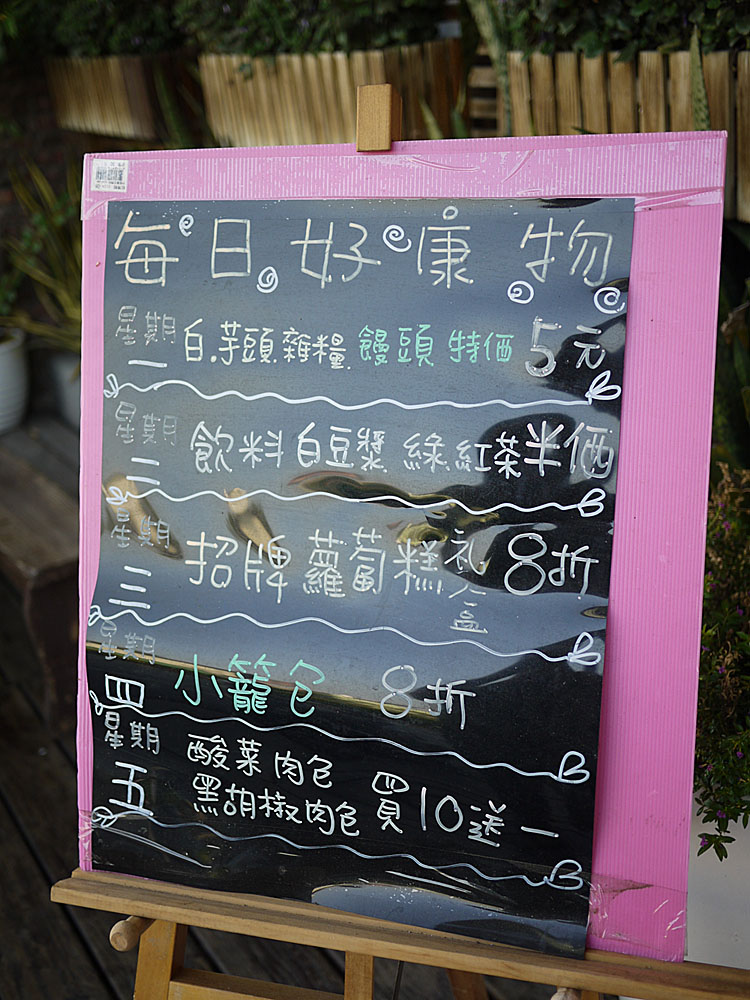 每日好康物
星期一 白.芋頭.雜糧.饅頭 特価 5元
星期二 飲料 白豆漿 綠.紅茶半価
星期三 招牌蘿蔔糕礼盒 8折
星期四 小籠包 8折
星期五 酸菜肉包
黑胡椒肉包 買10送一